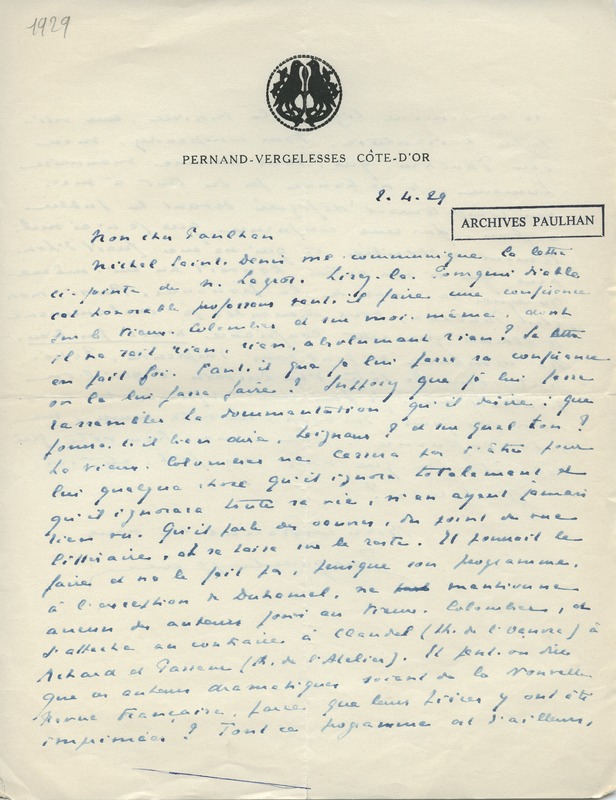 1929
PERNAND-VERGELESSES CÔTE-D'OR
2.4.29
ARCHIVES PAULHAN
Mon cher Paulhan
Michel Saint-Denis me communique la lettre
ci-jointe de M. Lagros. Lisez-la. Pourquoi diable
cet honorable professeur veut-il faire une conférence
sur le Vieux-Colombier et sur moi-même, dont
il ne sait rien, rien, absolument rien? Sa lettre
en fait foi. Faut-il que je lui fasse sa conférence
ou la lui fasse faire? Supposez que je lui fasse
rassembler la documentation qu'il désire: que
pourra-t-il bien dire, Seigneur? et sur quel ton?
Le Vieux-Colombier ne cessera pas d'être pour
lui quelque chose qu'il ignore totalement et
qu'il ignorera toute sa vie, n'en ayant jamais
rien vu. Qu'il parle des oeuvres, du point de vue
littéraire, et se taise sur le reste. Il pourrait le
faire et ne le fait pas, puisque son programme,
à l'exception de Duhamel, ne mentionne
aucun des auteurs joués au Vieux-Colombier, et
s'attache au contraire à Claudel (th. de l'Oeuvre) à
Achard et Passeur (th. de l'Atelier). Et peut-on dire
que ces auteurs dramatiques soient de la Nouvelle
Revue Française, parce que leurs pièces y ont été
imprimées? Tout ce programme est d'ailleurs,